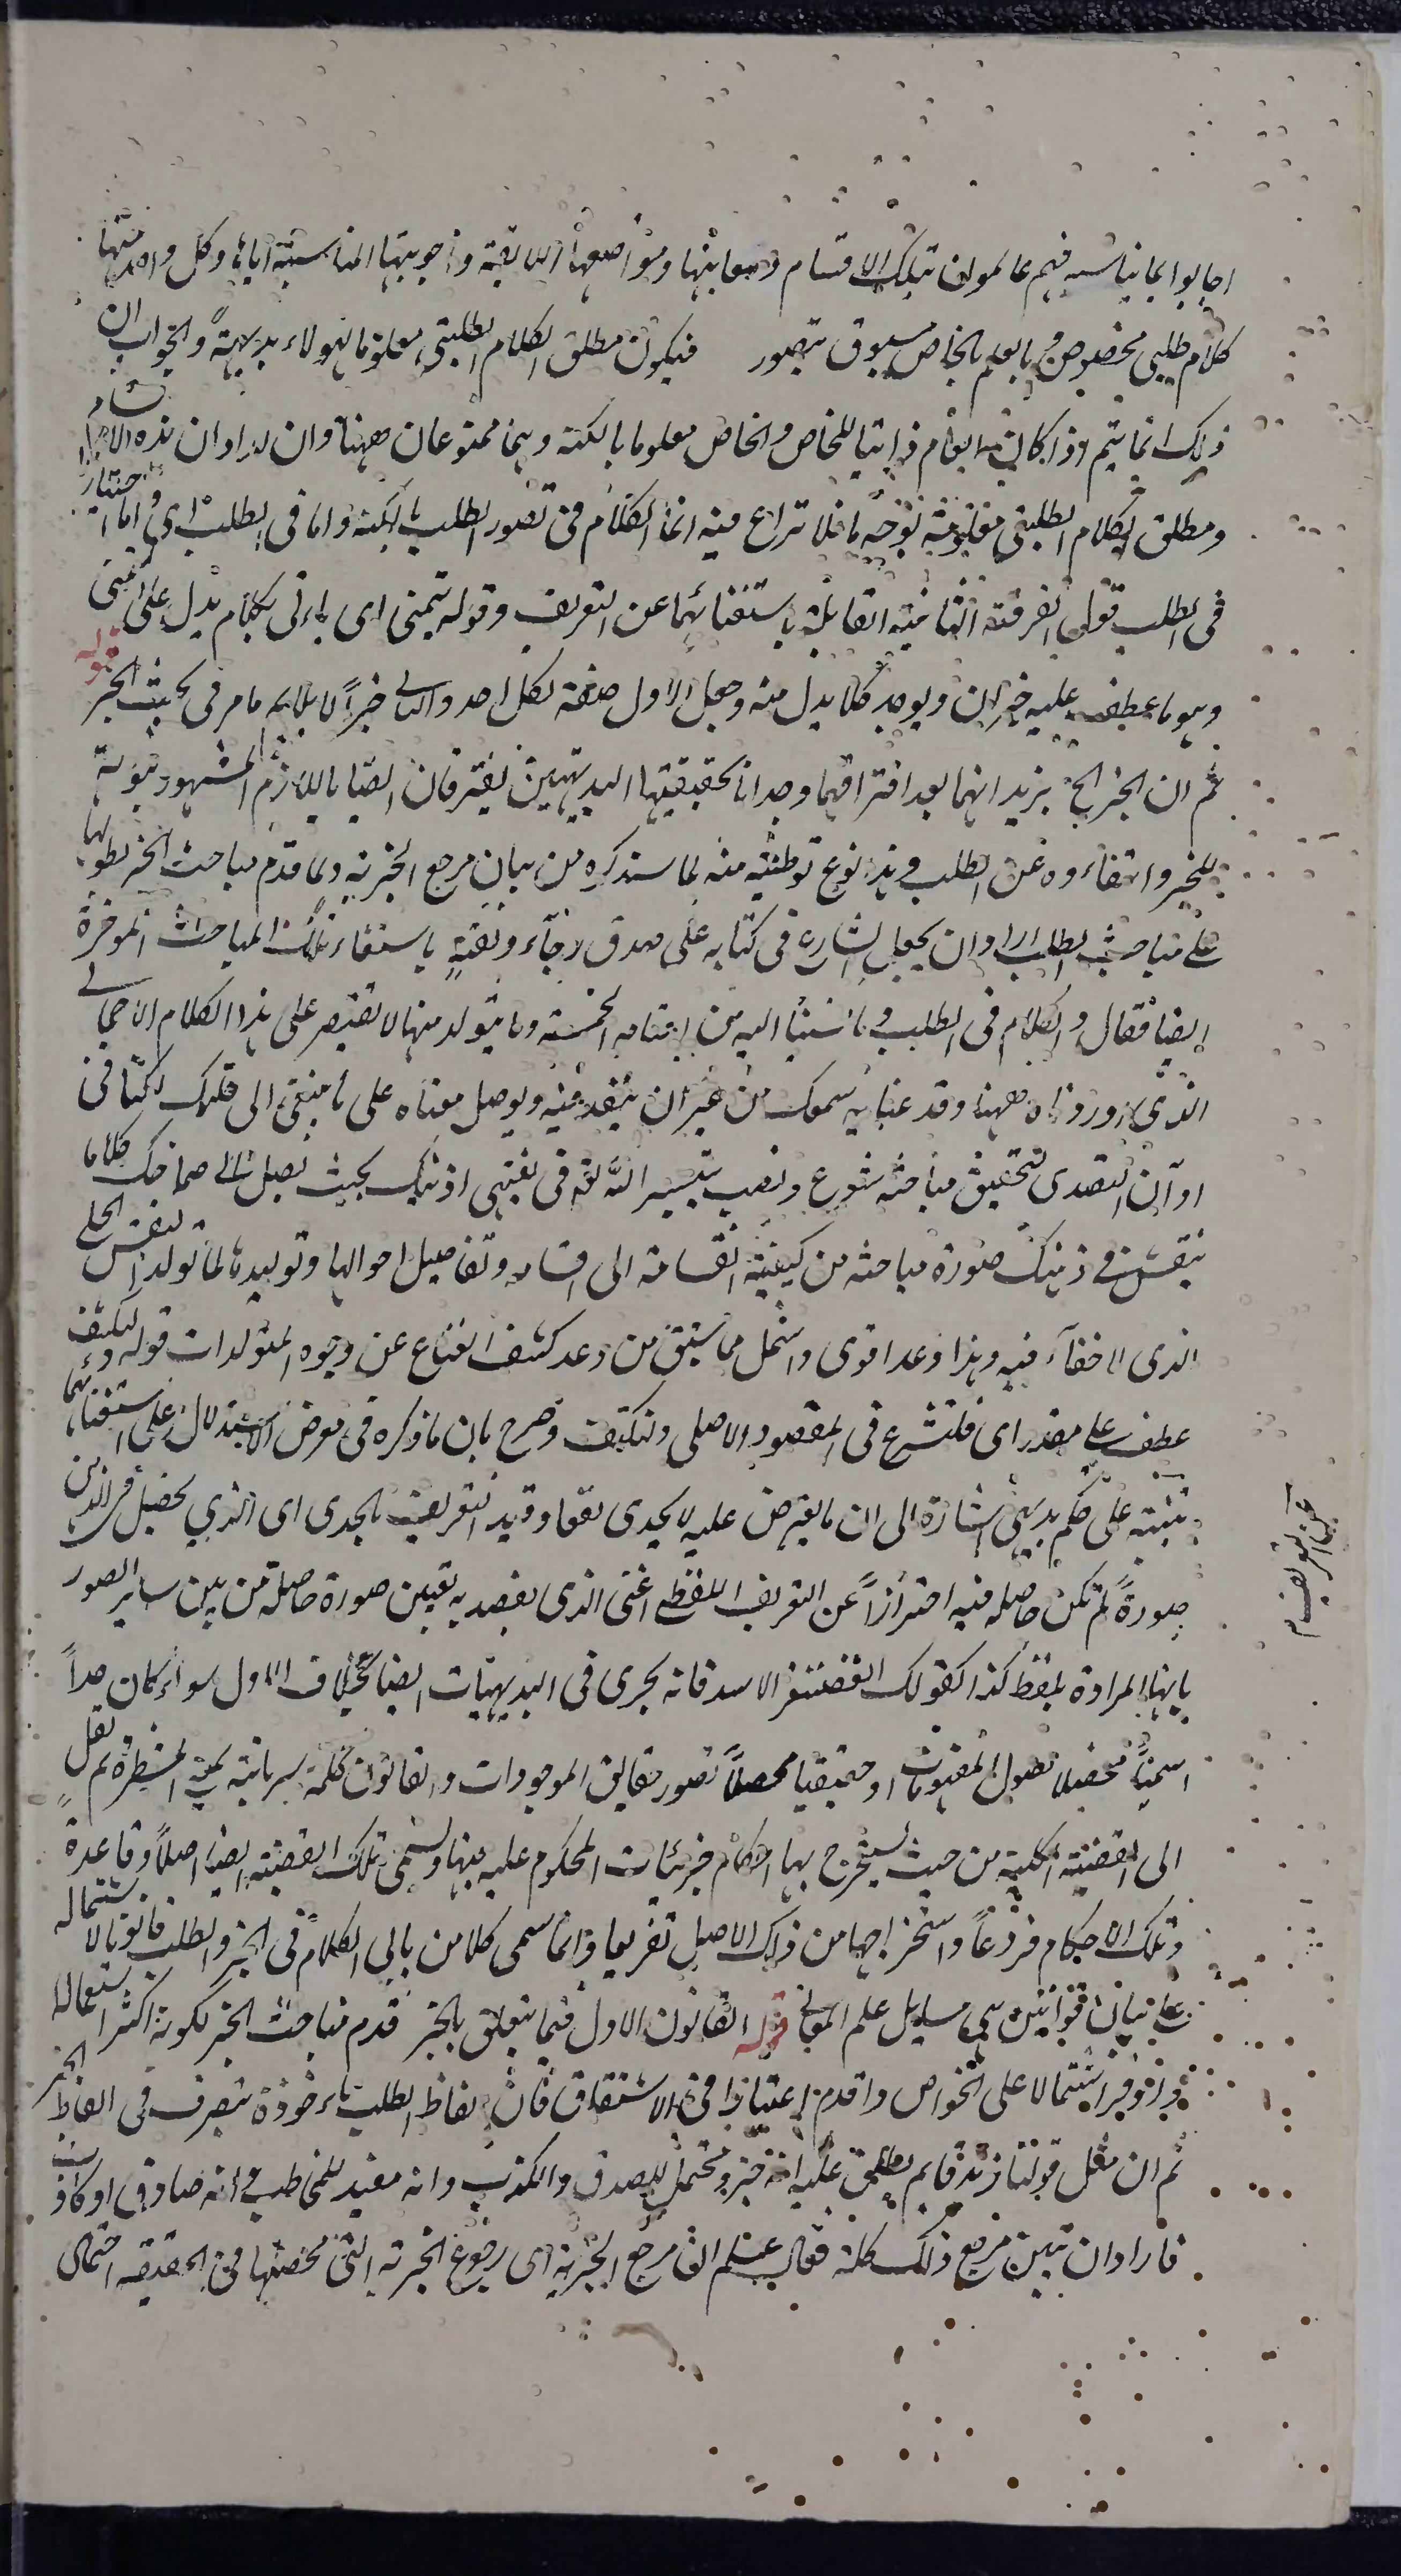 اجابوا بما يناسبه فهم عالمون بتلك الاقسام ومعانيها ومواضعها اللايقة واجوبتها المناسبة اياها وكل واحد منها
كلام طلبى مخصوص و العلم بالخاص مسبوق بتصور فيكون مطلق الكلام الطلبى معلوما لهولاء بديهة والجواب ان
ذلك انما يتم اذا كان العام ذاتيا للخاص والخاص معلوما بالكنه وهما ممنوعان ههنا وان اراد ان هذه الاقسام
ومطلق الكلام الطلبى معلومة بوجه ما فلا نزاع فيه انما الكلام فى تصور الطلب بالكنه واما فى الطلب اى واما اختيار
فى الطلب قول الفرقة الثانية القايلة باستغنائهما عن التعريف وقوله يتمنى اى ياتى بكلام يدل على التمنى
وهو ما عطف عليه خبر ان ويوجد كلا بدل منه وجعل الاول صفة لكل احد والثانى خبرا لا يلايم ما مر فى بحث الخبر قوله
ثم ان الخبر الخ يريد انهما بعد افتراقهما وجدانا بحقيقتها البديهيتين يفترقان ايضا باللازم المشهور ثبوته
للخبر وانتفاءه عن الطلب و هذا نوع توطئة منه لما سنذكره من بيان مرجع الخبرية ولما قدم مباحث الخبر بطولها
على مباحث الطلب اراد ان يجعل الشارع فى كتابه على صدق رجاء وثقة باستيفاء تلك المباحث المؤخرة
ايضا فقال والكلام فى الطلب و ما ننبئنا اليه من اقسامه الخمسة وما يتولد منها لا نقتصر على هذا الكلام الاجمالى
الذى اوردناه ههنا وقد عنا به سمعك من غير ان ينفذ فيه ويوصل معناه على ما ينبغى الى قلبك لكنا فى
اوان التصدى لتحقيق مباحثه نشرع ونصب بتيسير الله تع فى نقبتى اذنيك بحيث يصل الى صماخك كلاما
ينقش فى ذهنك صورة مباحثه من كيفية انقسامه الى اقسامه وتفاصيل احوالها وتوليدها لما تولد النقش الجلى
الذى لا خفاء فيه وهذا وعد اقوى واشمل مما سبق من وعد كشف القناع عن وجوه المتولدات قوله ولنكتف
عطف على مقدر اى فلنشرع فى المقصود الاصلى ولنكتف وصرح بان ما ذكره فى معرض الاستدلال على استغنائهما
تنبيه على حكم بديهى اشارة الى ان ما يعترض عليه لا يجدى نفعا وقيد التعريف بالحدى اى الذى يحصل فى الذهن
صورة لم تكن حاصلة فيه احترازا عن التعريف اللفظى اعنى الذى يقصد به تعيين صورة حاصلة من بين ساير الصور
بانها المرادة بلفظ كذا كقولك الغضنفر الاسد فانه يجرى فى البديهيات ايضا بخلاف الاول سواء كان حدا
اسميا محصلا لصور المفهومات او حقيقيا محصلا تصور حقايق الموجودات والقانون كلمة سريانية بمعنى المسطرة ثم نقل
الى القضية الكلية من حيث يستخرج بها احكام جزئيات المحكوم عليه فيها وتسمى تلك القضية ايضا اصلا وقاعدة
وتلك الاحكام فروعا واستخراجها من ذلك الاصل تفريعا وانما سمى كلا من بابى الكلام فى الخبر والطلب قانونا لاشتماله
على بيان قوانين هى مسايل علم المعانى قوله القانون الاول فيما يتعلق بالخبر قدم مباحث الخبر لكونه اكثر استعمالا
واوفر اشتمالا على الخواص واقدم اعتبارا فى الاشتقاق فان الفاظ الطلب ماخوذة بتصرف فى الفاظ الخبر
ثم ان مثل قولنا زيد قايم يطلق عليه انه خبر ومحتمل للصدق والكذب وانه مفيد للمخاطب وانه صادق او كاذب
فاراد ان يبين مرجع ذلك كله فقال اعلم ان مرجع الخبرية اى رجوع الخبرية التى محضتها فى الحقيقه احتمال